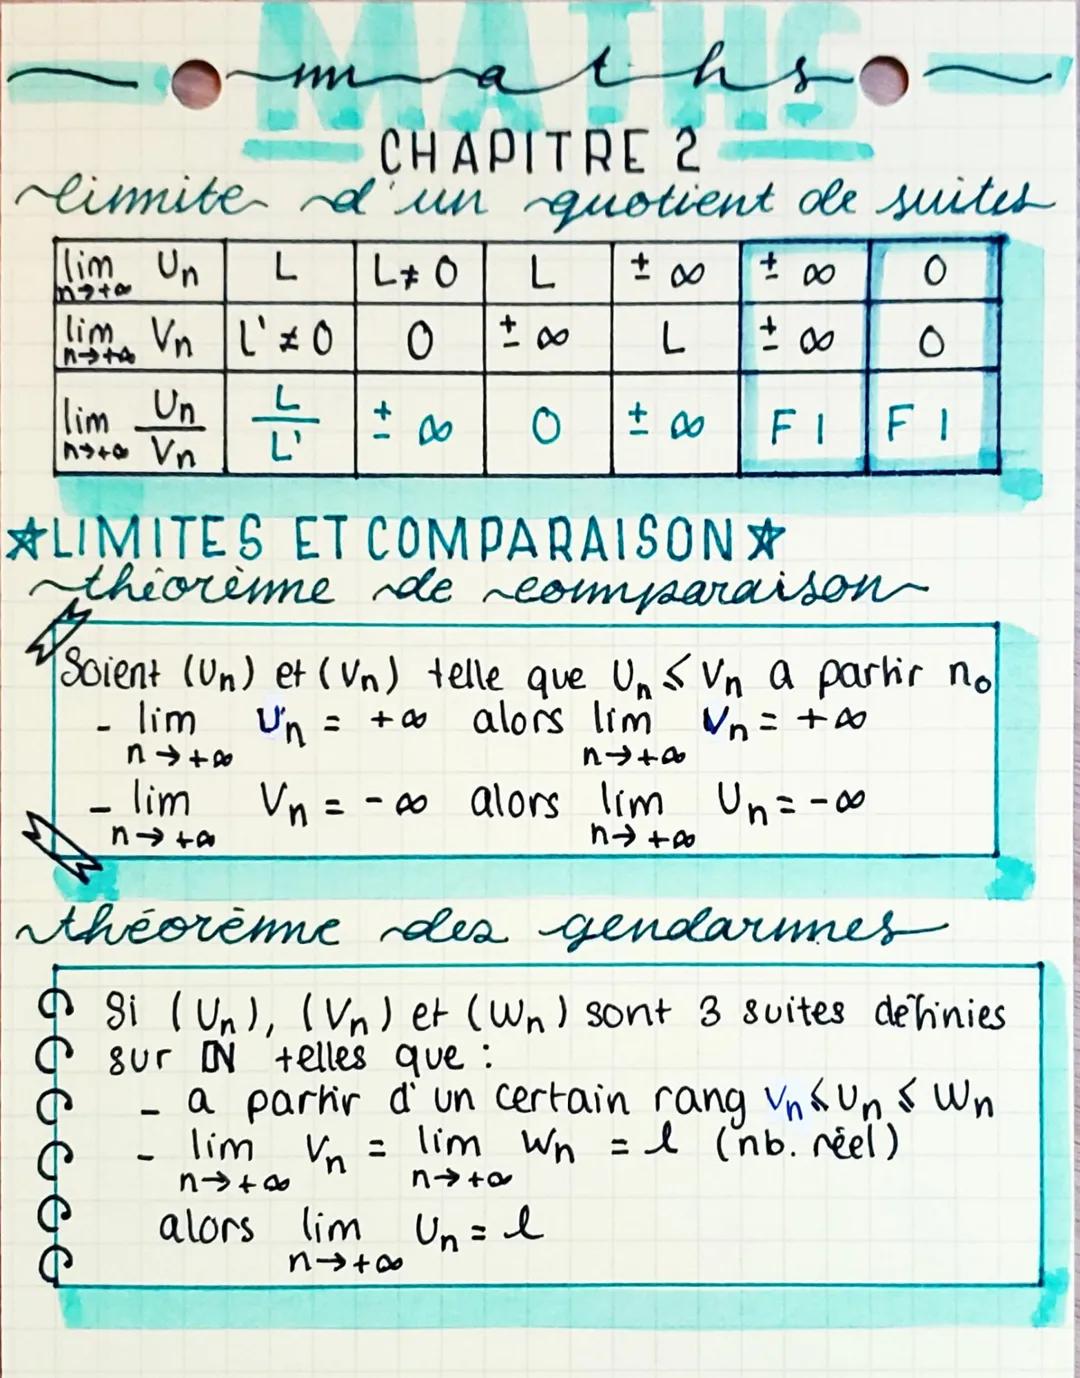 MATHS
maths
CHAPITRE 2
limite d'un quotient de suites
lim n→+∞ Un | L | L≠0 | L | ±∞ | ±∞ | 0
lim n→+∞ Vn | L'≠0 | 0 | ±∞ | L | ±∞ | 0
lim n→+∞ Un/Vn | L/L' | ±∞ | 0 | ±∞ | FI | FI
☆LIMITES ET COMPARAISON☆
théorème de comparaison
Soient (Un) et (Vn) telle que Un ≤ Vn a partir n₀
- lim n→+∞ Un = +∞ alors lim n→+∞ Vn = +∞
- lim n→+∞ Vn = -∞ alors lim n→+∞ Un = -∞
théorème des gendarmes
Si (Un), (Vn) et (Wn) sont 3 suites définies
sur ℕ telles que :
- a partir d'un certain rang Vn ≤ Un ≤ Wn
- lim n→+∞ Vn = lim n→+∞ Wn = l (nb. réel)
alors lim n→+∞ Un = l